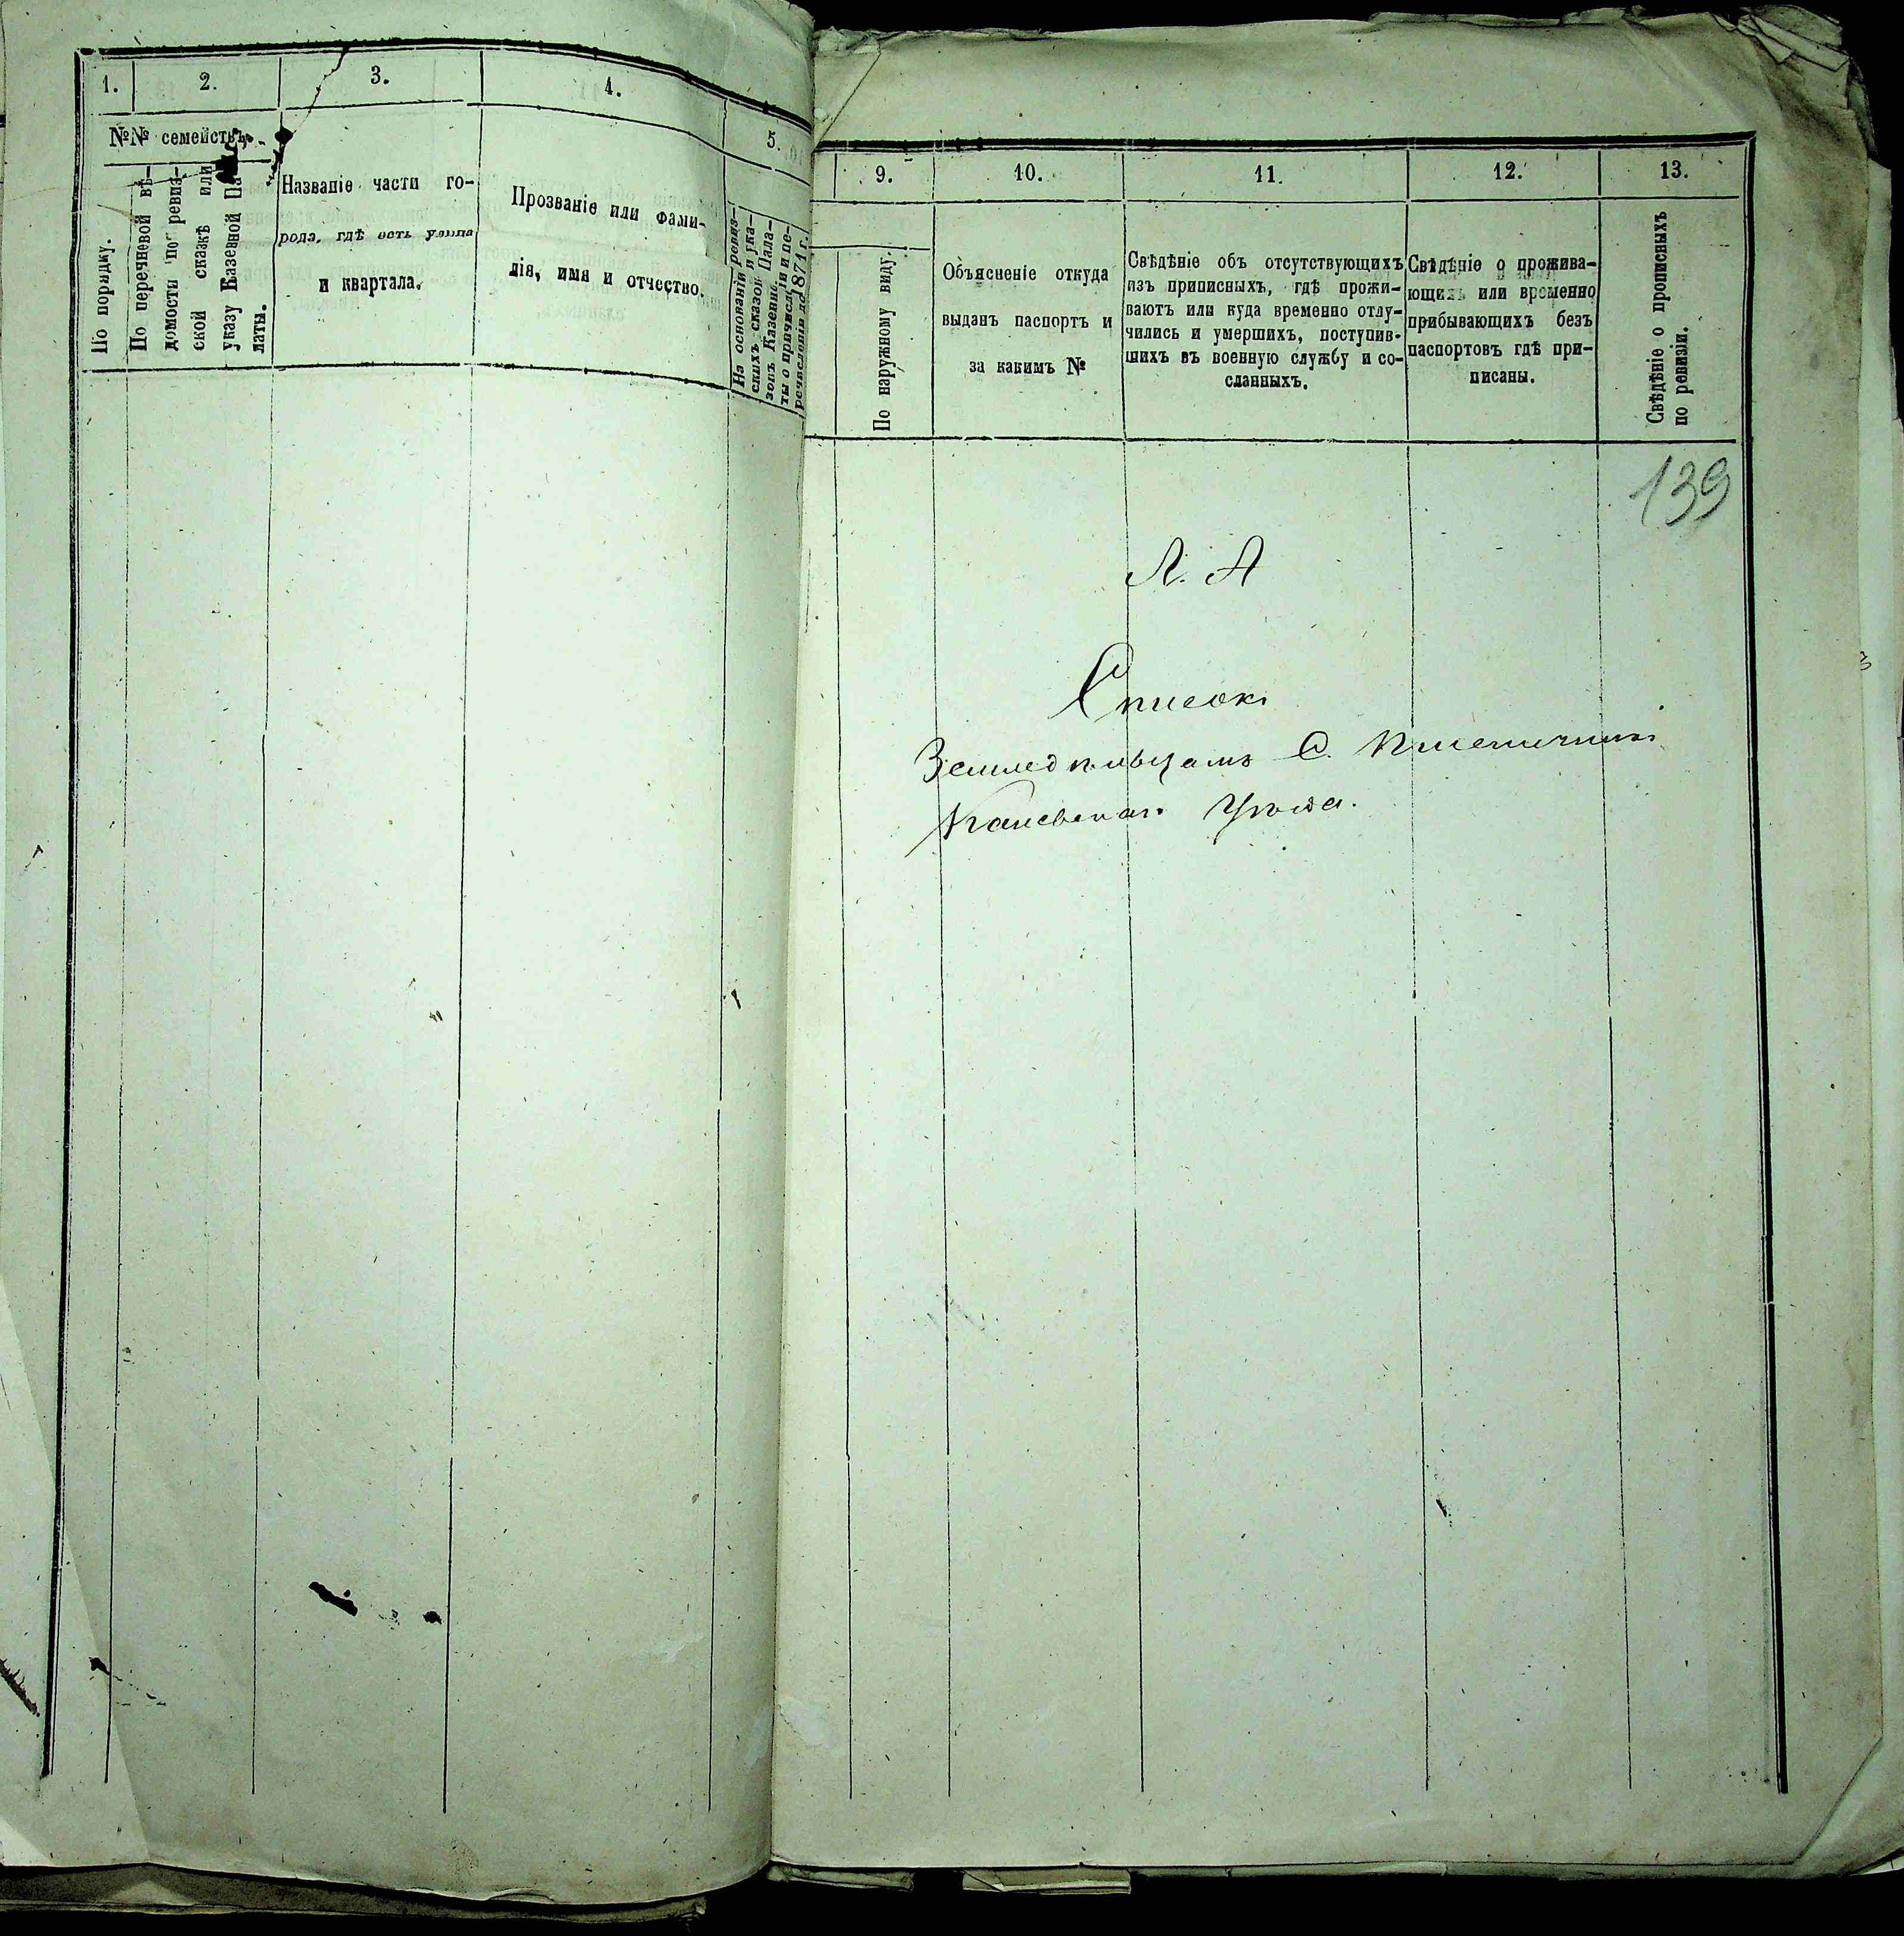 1.
2.
3.
4.
5.
№№ семействъ.
По порядку.
По перечневой вѣ-
домости по ревиз-
ской сказкѣ или
указу Казенной Па-
латы.
Названіе части го-
рода, гдѣ есть улица
и квартала.
Прозваніе или фами-
лія, имя и отчество.
На основаніи ревиз-
скихъ сказокъ и ука-
зовъ Казенной Пала-
ты о причисленіи и пе-
речисленіи до 1871 г.
9.
10.
11.
12.
13.
По наружному виду.
Объясненіе откуда
выданъ паспортъ и
за какимъ №
Свѣдѣніе объ отсутствующихъ
изъ приписныхъ, гдѣ прожи-
ваютъ или куда временно отлу-
чились и умершихъ, поступив-
шихъ въ военную службу и со-
сланныхъ.
Свѣдѣніе о прожива-
ющихъ или временно
прибывающихъ безъ
паспортовъ гдѣ при-
писаны.
Свѣдѣніе о прописныхъ
по ревизіи.
139
Л. А
Списокъ
Земледѣльцамъ С. Пшеничники
Каневскаго Уѣзда.